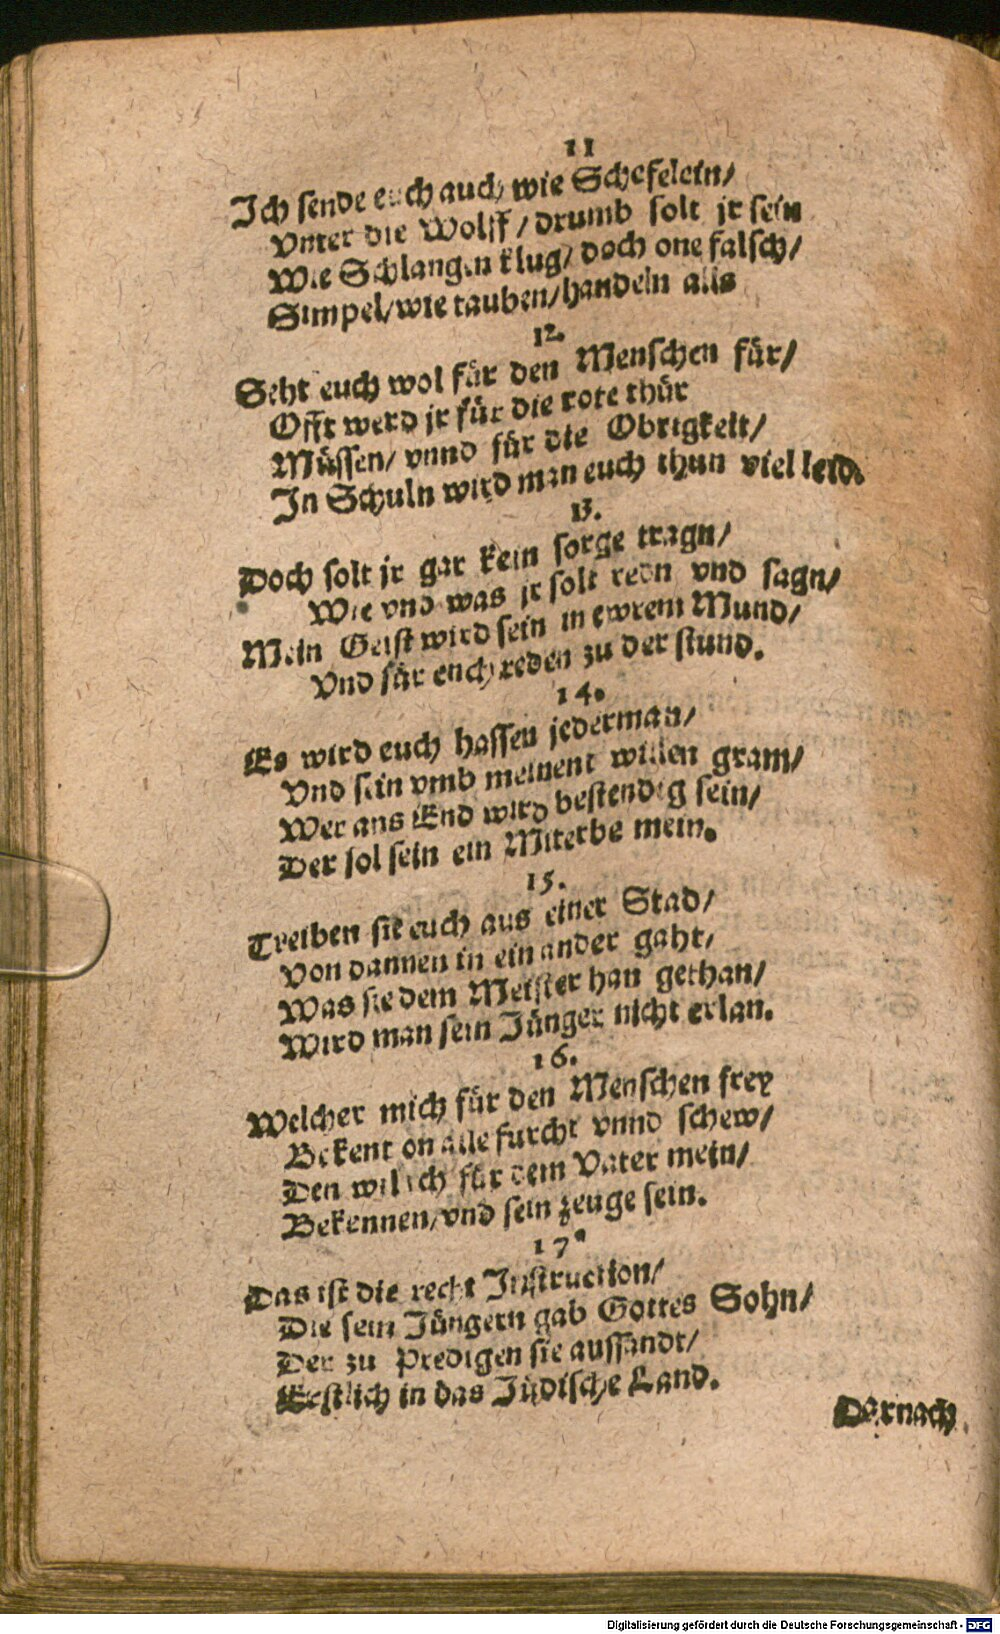 11
Ich sende euch auch wie Schefelein/
Vnter die Wolff/ drumb solt jr sein
Wie Schlangen klug/ doch one falsch/
Simpel/ wie tauben/ handeln alls
12.
Seht euch wol für den Menschen für/
Offt werd jr für die rote thür
Müssen/ vnnd für die Obrigkeit/
In Schuln wird man euch thun viel leid.
13.
Doch solt jr gar kein sorge tragn/
Wie vnd was jr solt redn vnd sagn/
Mein Geist wird sein in ewrem Mund/
Vnd für euch reden zu der stund.
14.
Es wird euch hassen jederman/
Vnd sein vmb meinent willen gram/
Wer ans End wird bestendig sein/
Der sol sein ein Miterbe mein.
15.
Treiben sie euch aus einer Stad/
Von dannen in ein ander gaht/
Was sie dem Meister han gethan/
Wird man sein Jünger nicht erlan.
16.
Welcher mich für den Menschen frey
Bekent on alle furcht vnnd schew/
Den wil ich für dem Vater mein/
Bekennen/ vnd sein zeuge sein.
17.
Das ist die recht Instruction/
Die sein Jüngern gab Gottes Sohn/
Der zu Predigen sie aussandt/
Erstlich in das Jüdische Land.
Darnach
Digitalisierung gefördert durch die Deutsche Forschungsgemeinschaft - DFG